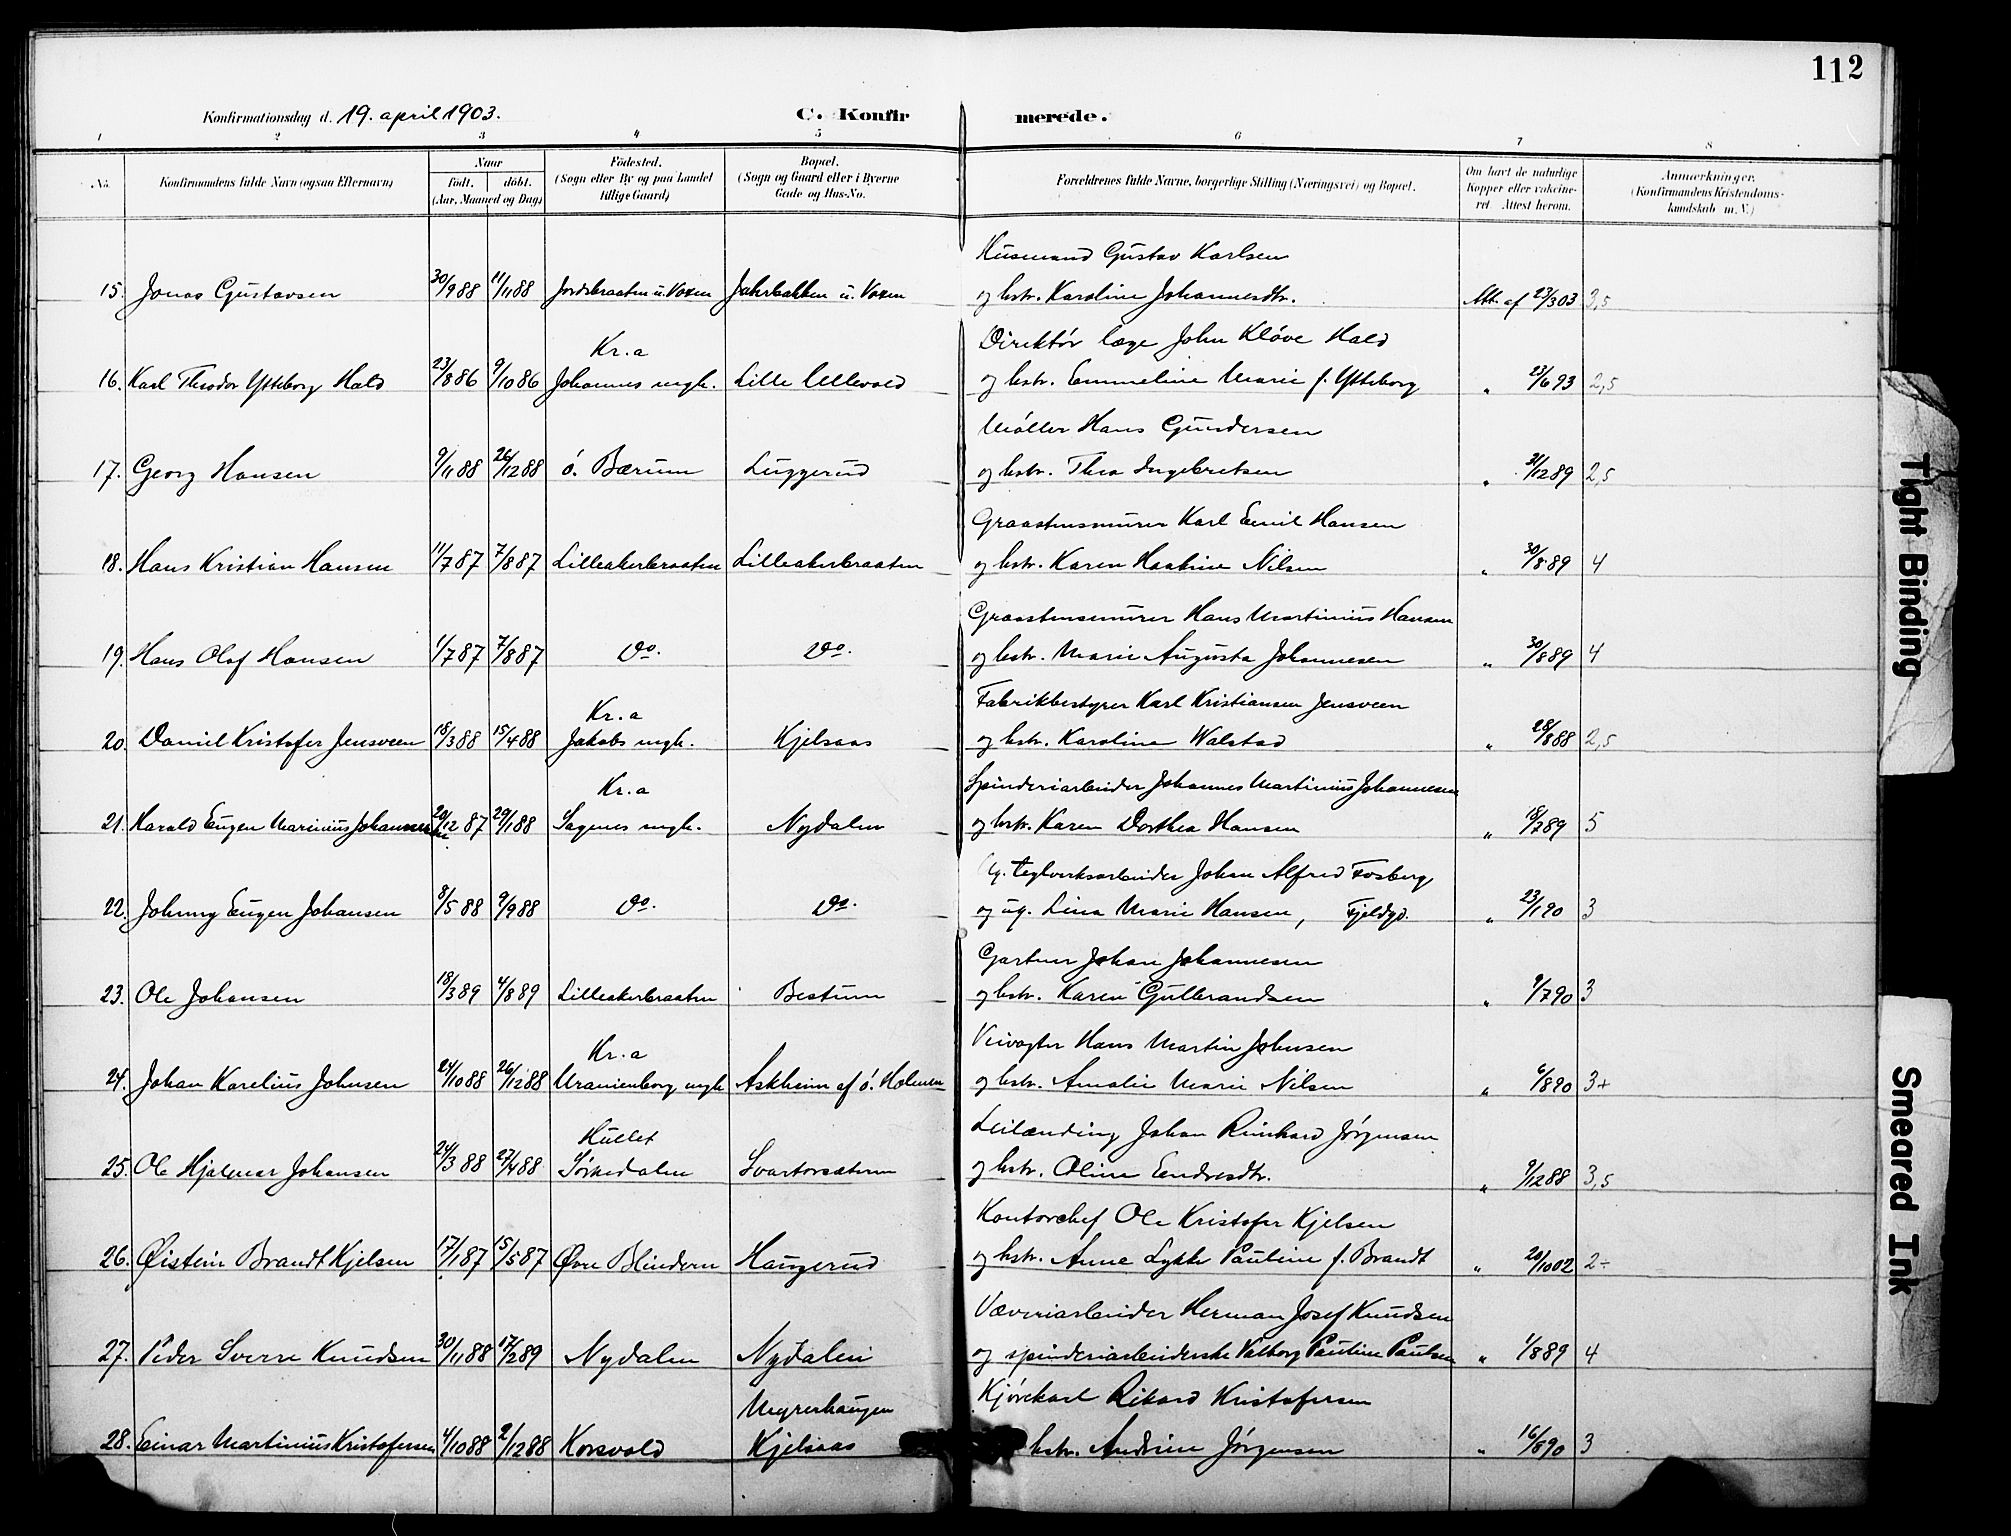 112
Konfirmationsdag d. 19. april 1903.
C. Konfirmerede.
1 2 3 4 5 6 7 8
No.
Konfirmandens fulde Navn (ogsaa Efternavn)
Naar
født. døbt.
(Aar, Maaned og Dag)
Fødested.
(Sogn eller By og paa Landet
tillige Gaard)
Bopæl.
(Sogn og Gaard eller i Byerne
Gade og Hus-No.
Forældrenes fulde Navne, borgerlige Stilling (Næringsvei) og Bopæl.
Om havt de naturlige
Kopper eller vakcine-
ret. Attest herom.
Anmærkninger.
(Konfirmandens Kristendoms-
kundskab m. V.)
Husmand Gustav Karlsen
15. Jonas Gustavsen 30/9 88 11/11 88 Jordsbraaten u. Voxen u. Voxen og hstr. Karoline Johannesdtr. Att. af 23/3 03 3,5
Kr.a Direktør læge John Kløve Hald
16. Karl Theodor Ytteborg Hald 23/8 86 9/10 86 Johannes mgh. Lille Ullevold og hstr. Emmeline Marie f. Ytteborg " 23/6 93 2,5
Møller Hans Gundersen
17. Georg Hansen 9/11 88 26/12 88 ø. Bærum Luggerud og hstr. Thea Ingebretsen " 31/12 89 2,5
Graastensmurer Karl Emil Hansen
18. Hans Kristian Hansen 11/7 87 7/8 87 Lilleakerbraaten Lilleakerbraaten og hstr. Karen Nilsen " 30/8 89 4
Graastensmurer Hans Martinius Hansen
19. Hans Olaf Hansen 1/7 87 7/8 87 Do. Do. og hstr. Marie Augusta Johannesen " 30/8 89 4
Kr.a Fabrikbestyrer Karl Kristiansen Jensveen
20. Daniel Kristofer Jensveen 18/3 88 15/4 88 Jakobs mgh. Kjelsaas og hstr. Karoline Walstad " 28/8 88 2,5
Kr.a Spinderiarbeider Johannes Martinius Johannesen
21. Harald Eugen Marinius Johannesen 20/12 87 29/1 88 Sagenes mgh. Nydalen og hstr. Karen Dorthea Hansen " 18/7 89 5
Ug. teglverksarbeider Johan Alfred Fosberg
22. Johnny Eugen Johansen 8/5 88 9/9 88 Do. Do. og ug. Lina Marie Hansen, Fjeldgd. " 23/1 90 3
Gartner Johan Johannesen
23. Ole Johansen 18/3 89 4/8 89 Lilleakerbraaten Bestum og hstr. Karen Gulbrandsen " 9/7 90 3
Kr.a Veivogter Hans Martin Johnsen
24. Johan Karelius Johnsen 24/10 88 26/12 88 Uranienborg mgh Askheim af ø. Holmen og hstr. Amalie Marie Nilsen " 6/8 90 3+
Hullet Leilænding Johan Reinhard Jørgensen
25. Ole Hjalmar Johansen 24/3 88 27/4 88 Sørkedalen Svartorsæteren og hstr. Oline Endresdtr. " 9/12 88 3,5
Kontorchef Ole Kristofer Kjelsen
26. Øistein Brandt Kjelsen 17/1 87 15/5 87 Øvre Blindern Haugerud og hstr. Anne Lykke Pauline f. Brandt " 20/10 02 2-
Væveriarbeider Herman Josef Knudsen
27. Peder Sverre Knudsen 30/11 88 17/2 89 Nydalen Nydalen og spinderiarbeiderske Valborg Pauline Paulsen " 1/8 89 4
Myrerhaugen Kjørekarl Rikard Kristofersen
28. Einar Martinius Kristofersen 4/10 88 2/12 88 Korsvold Kjelsaas hstr. Andrine Jørgensen " 16/8 90 3
Tight Binding
Smeared Ink